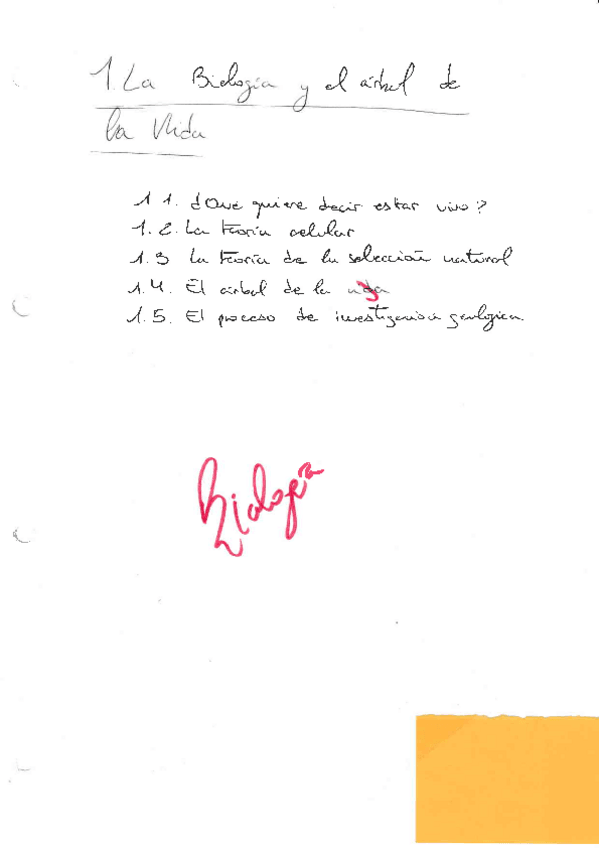 1. La Biología y el árbol de
la Vida
1 1. ¿Qué quiere decir estar vivo?
1.2. La teoría celular
1.3 La teoría de la selección natural
1.4. El árbol de la vida
1.5. El proceso de investigación geológica.
Biología